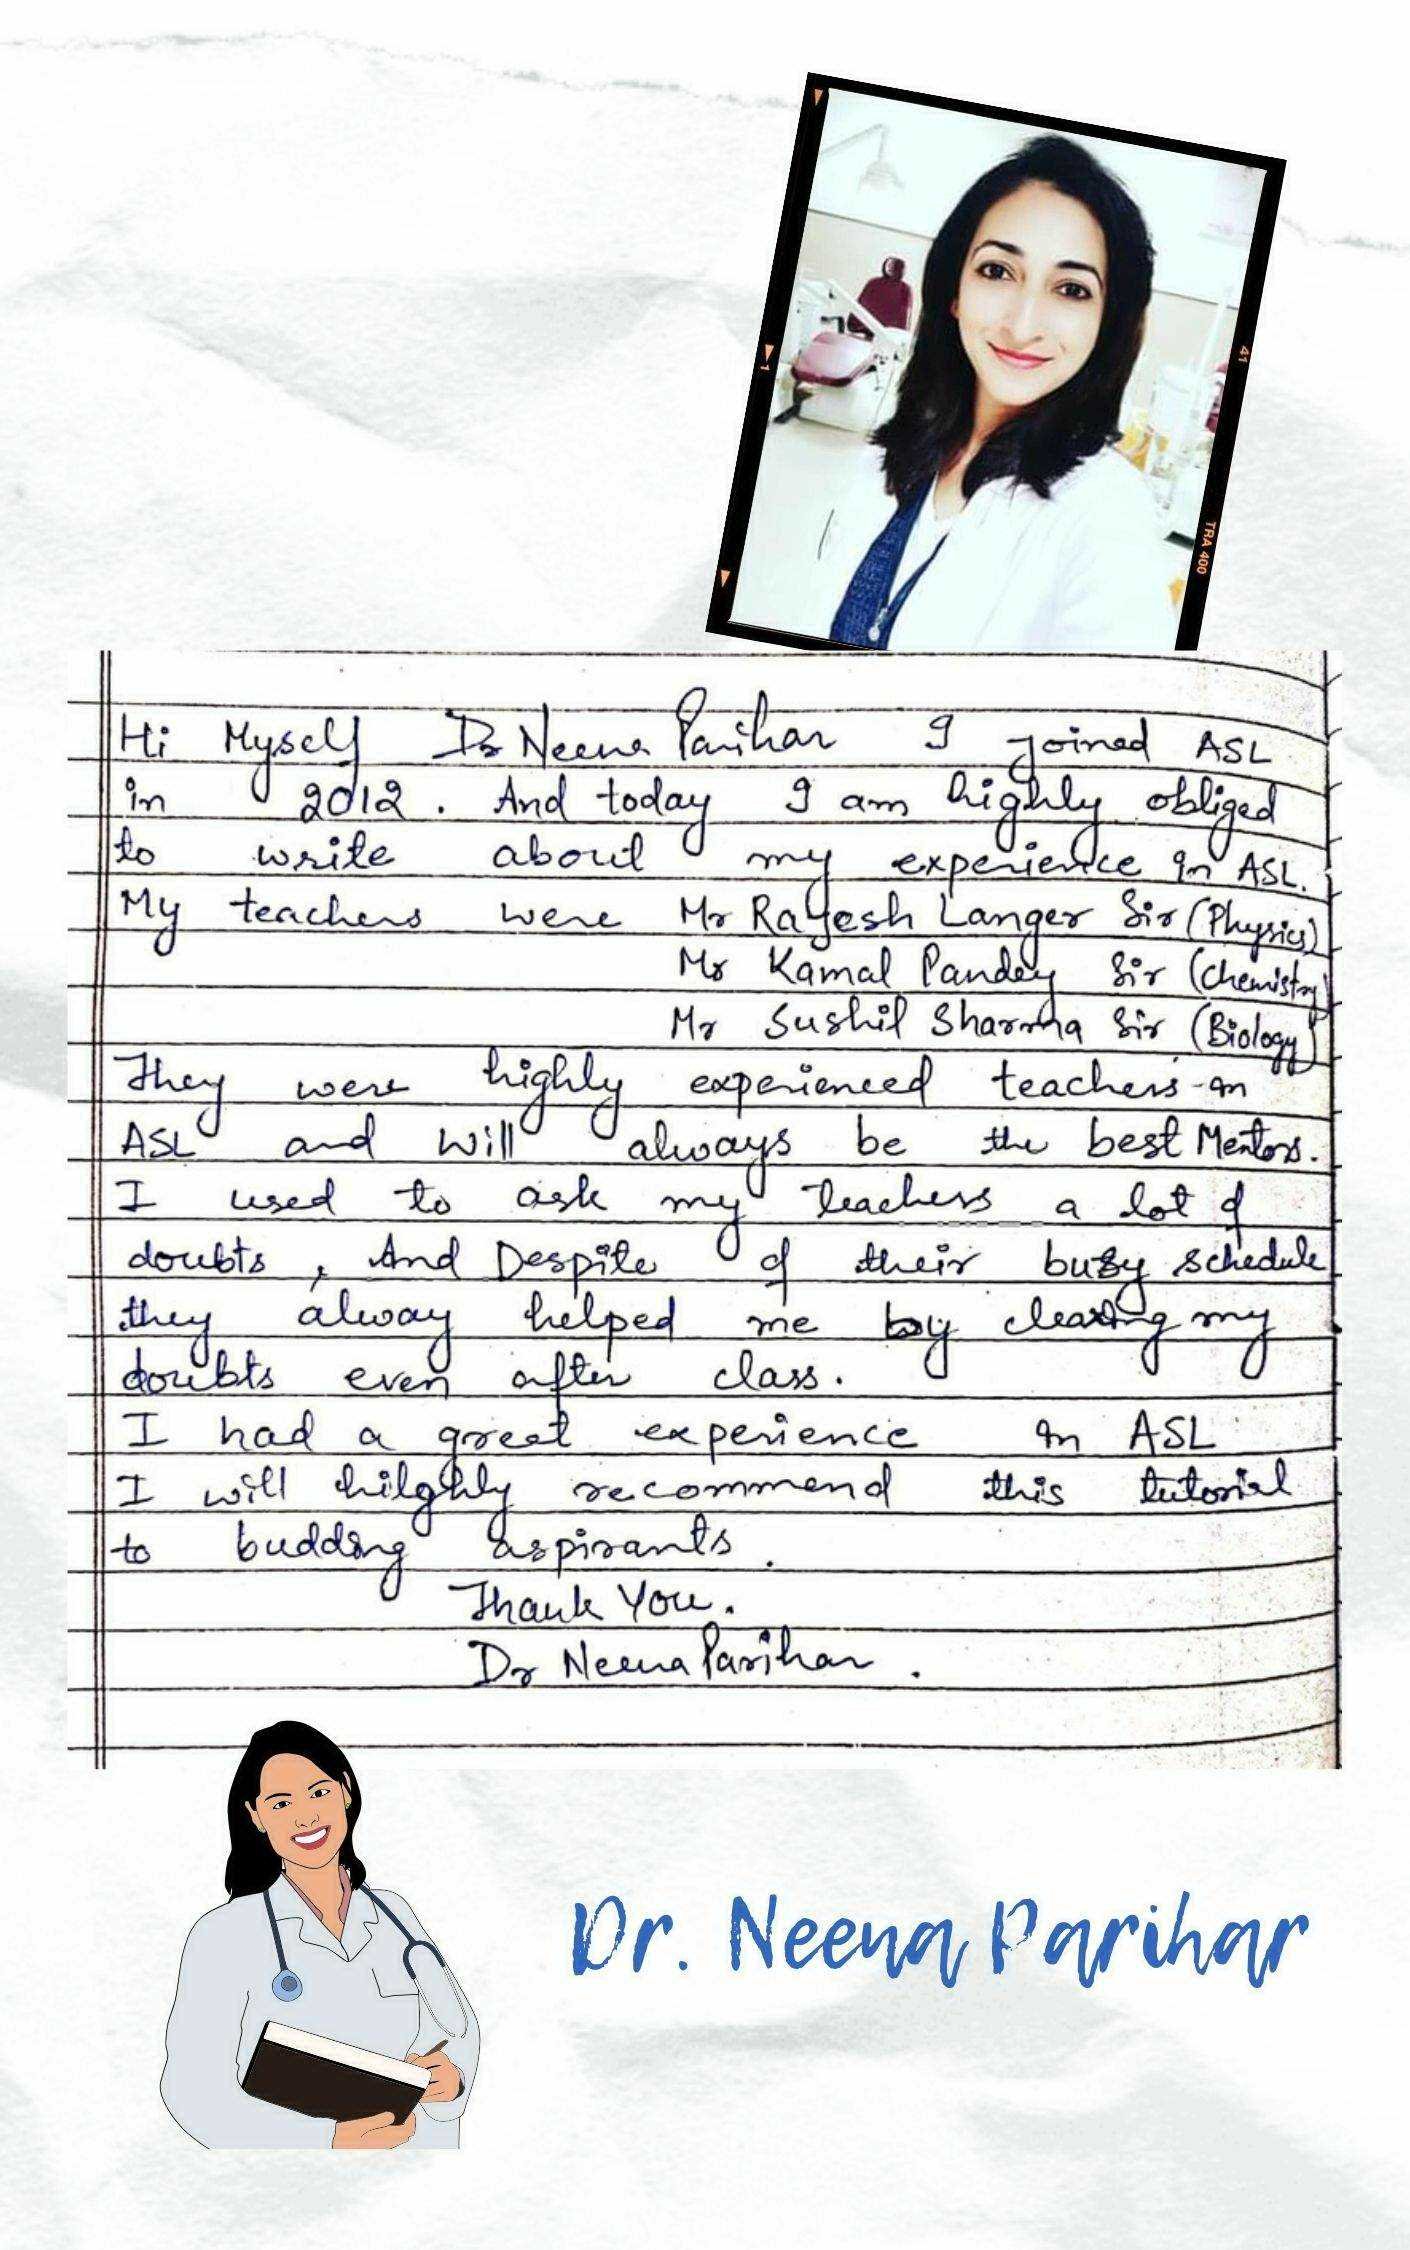 41
1
TRA 400
Hi Myself Dr Neena Parihar I joined ASL
in 2012. And today I am highly obliged
to write about my experience in ASL.
My teachers were Mr Rayesh Langer Sir (Physics)
Mr Kamal Pandey Sir (Chemistry)
Mr Sushil Sharma Sir (Biology)
They were highly experienced teachers in
ASL and will always be the best Mentors.
I used to ask my teachers a lot of
doubts, And Despite of their busy schedule
they alway helped me by clearing my
doubts even after class.
I had a great experience in ASL
I will hilghly recommend this tutorial
to budding aspirants.
Thank You.
Dr Neena Parihar.
Dr. Neena Parihar